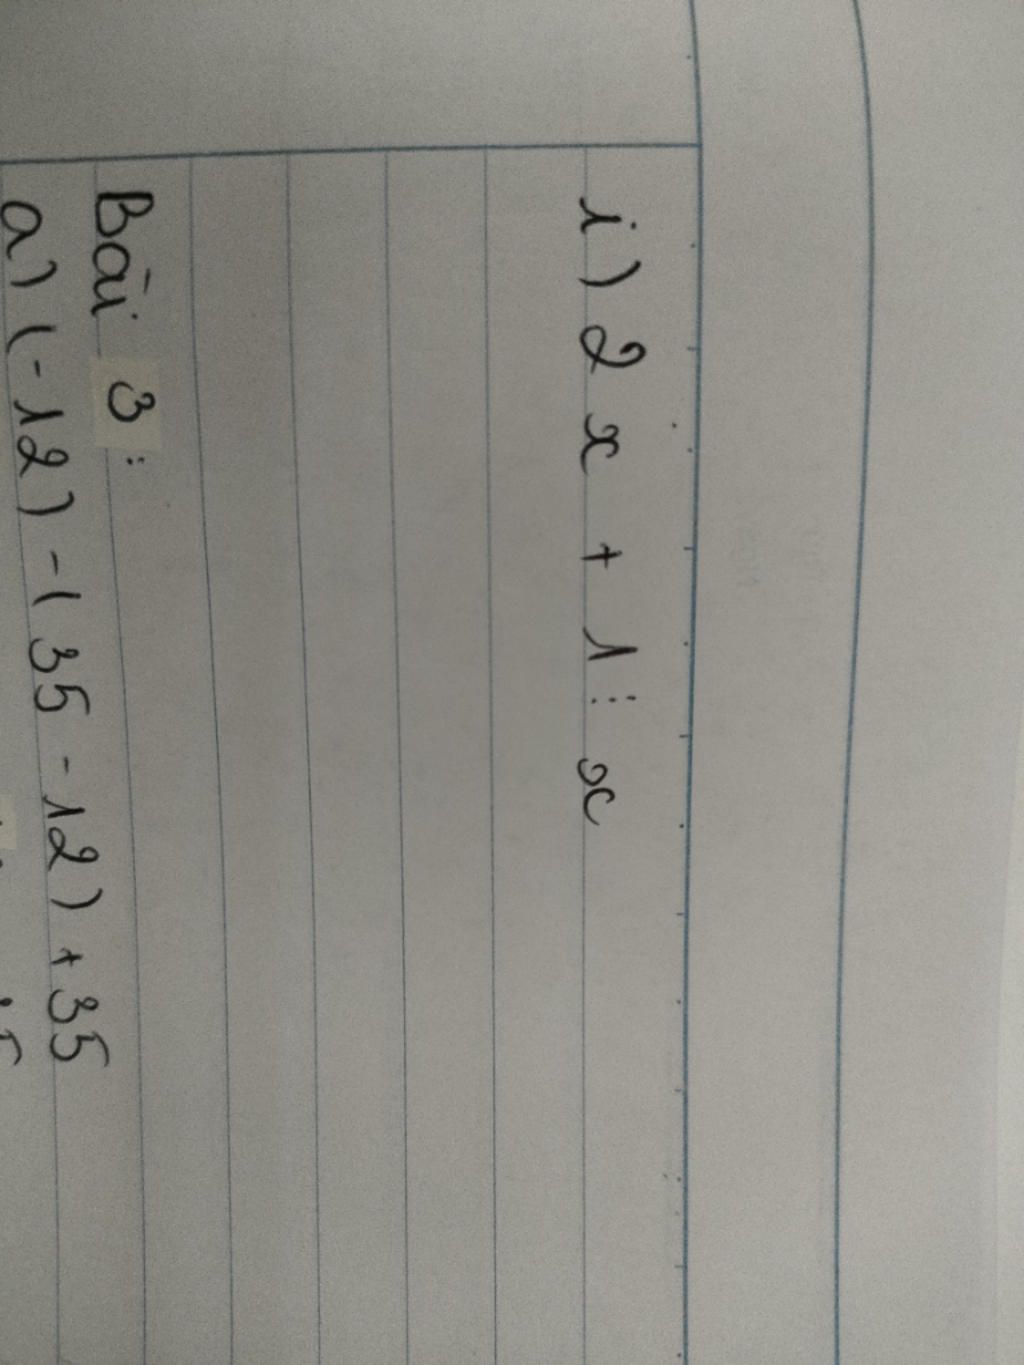 i) 2 x + 1 ⋮ x
Bài 3 :
a) (-12) - (35 - 12) + 35